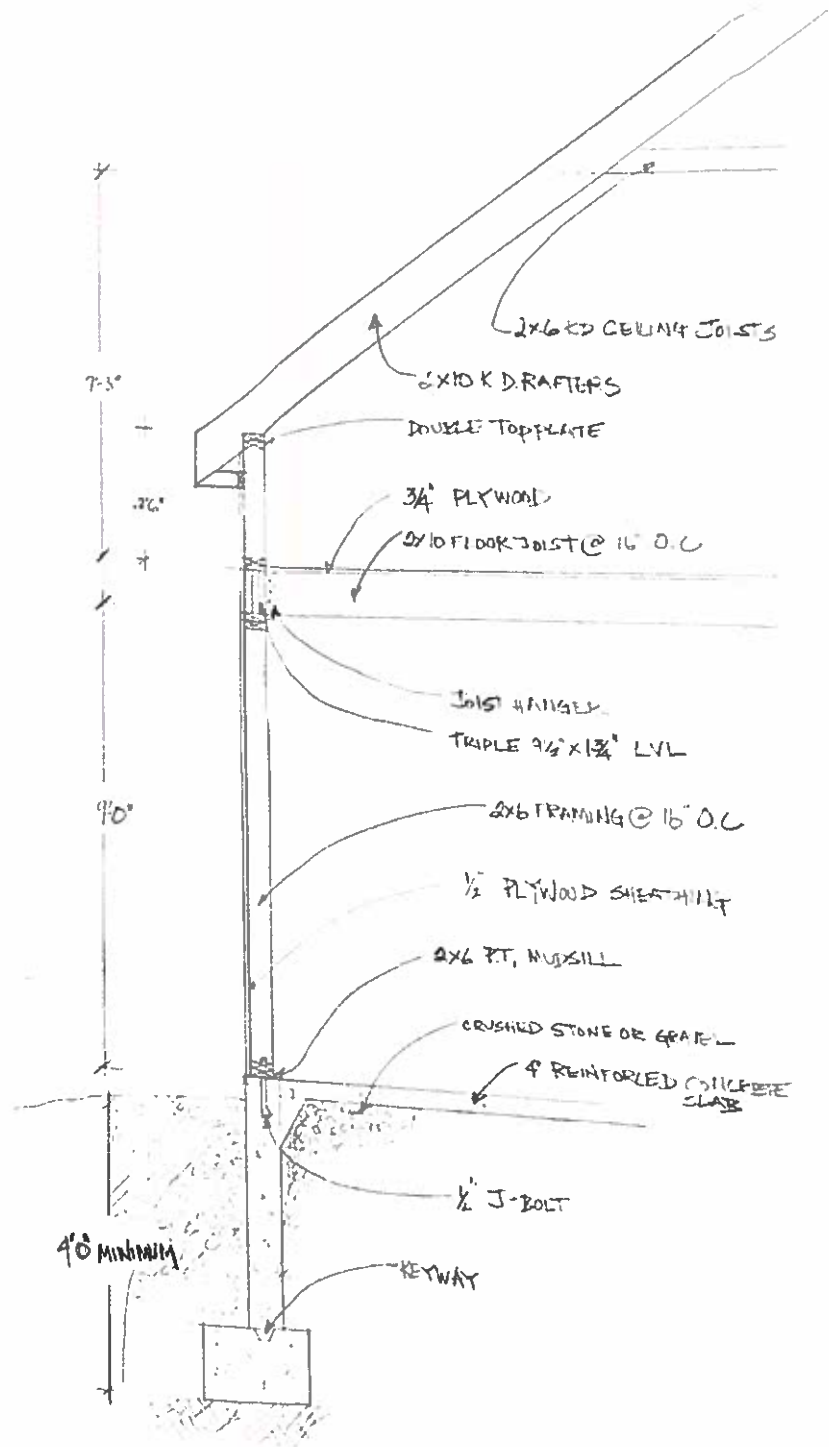 2x6 KD CEILING JOISTS
7'-3"
2x10 K.D. RAFTERS
DOUBLE TOP PLATE
3/4" PLYWOOD
2x10 FLOOR JOIST @ 16" O.C
JOIST HANGER
TRIPLE 9½" x 1¾" LVL
9'0"
2x6 FRAMING @ 16" O.C
½" PLYWOOD
2x6 P.T. MUDSILL
CRUSHED STONE OR GRAVEL
4" REINFORCED CONCRETE
SLAB
½" J-BOLT
4'0" MINIMUM
KEYWAY